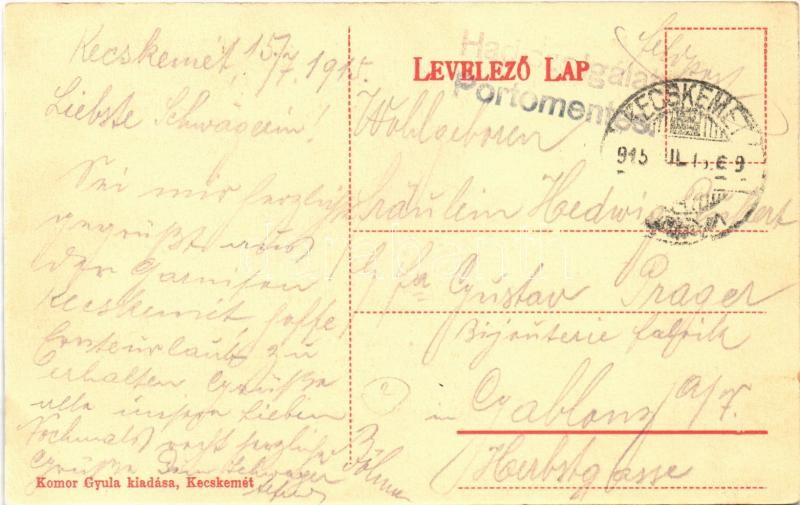 Kecskemét, 15/7. 1915.
Liebste Schwägerin!
Sei mir herzlichst
gegrüßt aus
der Garnison
Kecskemét, hoffe
Ernteurlaub zu
erhalten Grüße
alle unsere Lieben
Nochmals recht herzliche
Grüße Dein Schwager
Komor Gyula kiadása, Kecskemét
LEVELEZŐ LAP
Feldpost
Hadiszolgálat
Portomentes
KECSKEMÉT
915 JUL
Wohlgeboren
Fräulein Hedwig
p. Fa Gustav Prager
Bijouterie fabrik
in Gablonz a/N.
Herbstgasse
darabanth